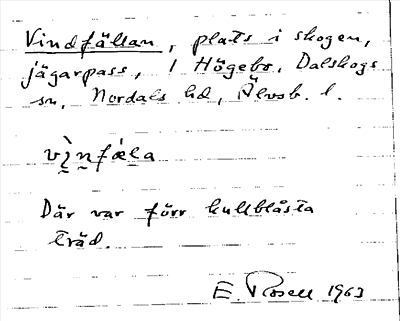 Vindfällan, plats i skogen,
jägarpass, / Högebo, Dalskogs
sn, Nordals hd, Älvsb. l.
vìnfǽla
Där var förr kullblåsta
träd.
E. Rosell 1963